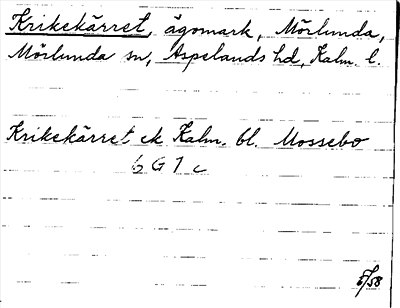 Krikekärret, ägomark, Mörlunda,
Mörlunda sn, Aspelands hd, Kalm. l.
Krikekärret ek Kalm. bl. Mossebo
6 G 7 c
5/58